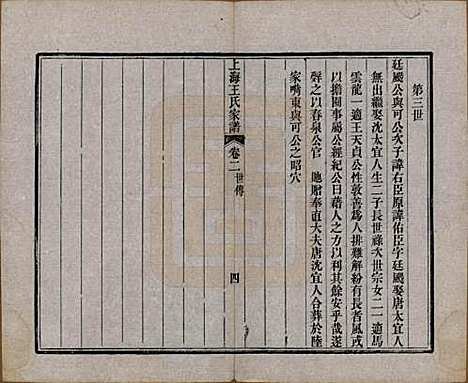 第三世
廷颺公與可公次子諱右臣原諱佑臣字廷颺娶唐太宜人
無出繼娶沈太宜人生二子長世祿次世宗女二一適馬
雲龍一適王天貞公性敦善爲人排難解紛有長者風或
以擔圖事屬公經紀公曰藉人之方以利其餘安乎哉遂
辭之以春泉公官 貤贈奉直大夫唐沈宜人合葬於陸
家嘴東與可公之昭穴
上海王氏家譜 卷二 世傳 四